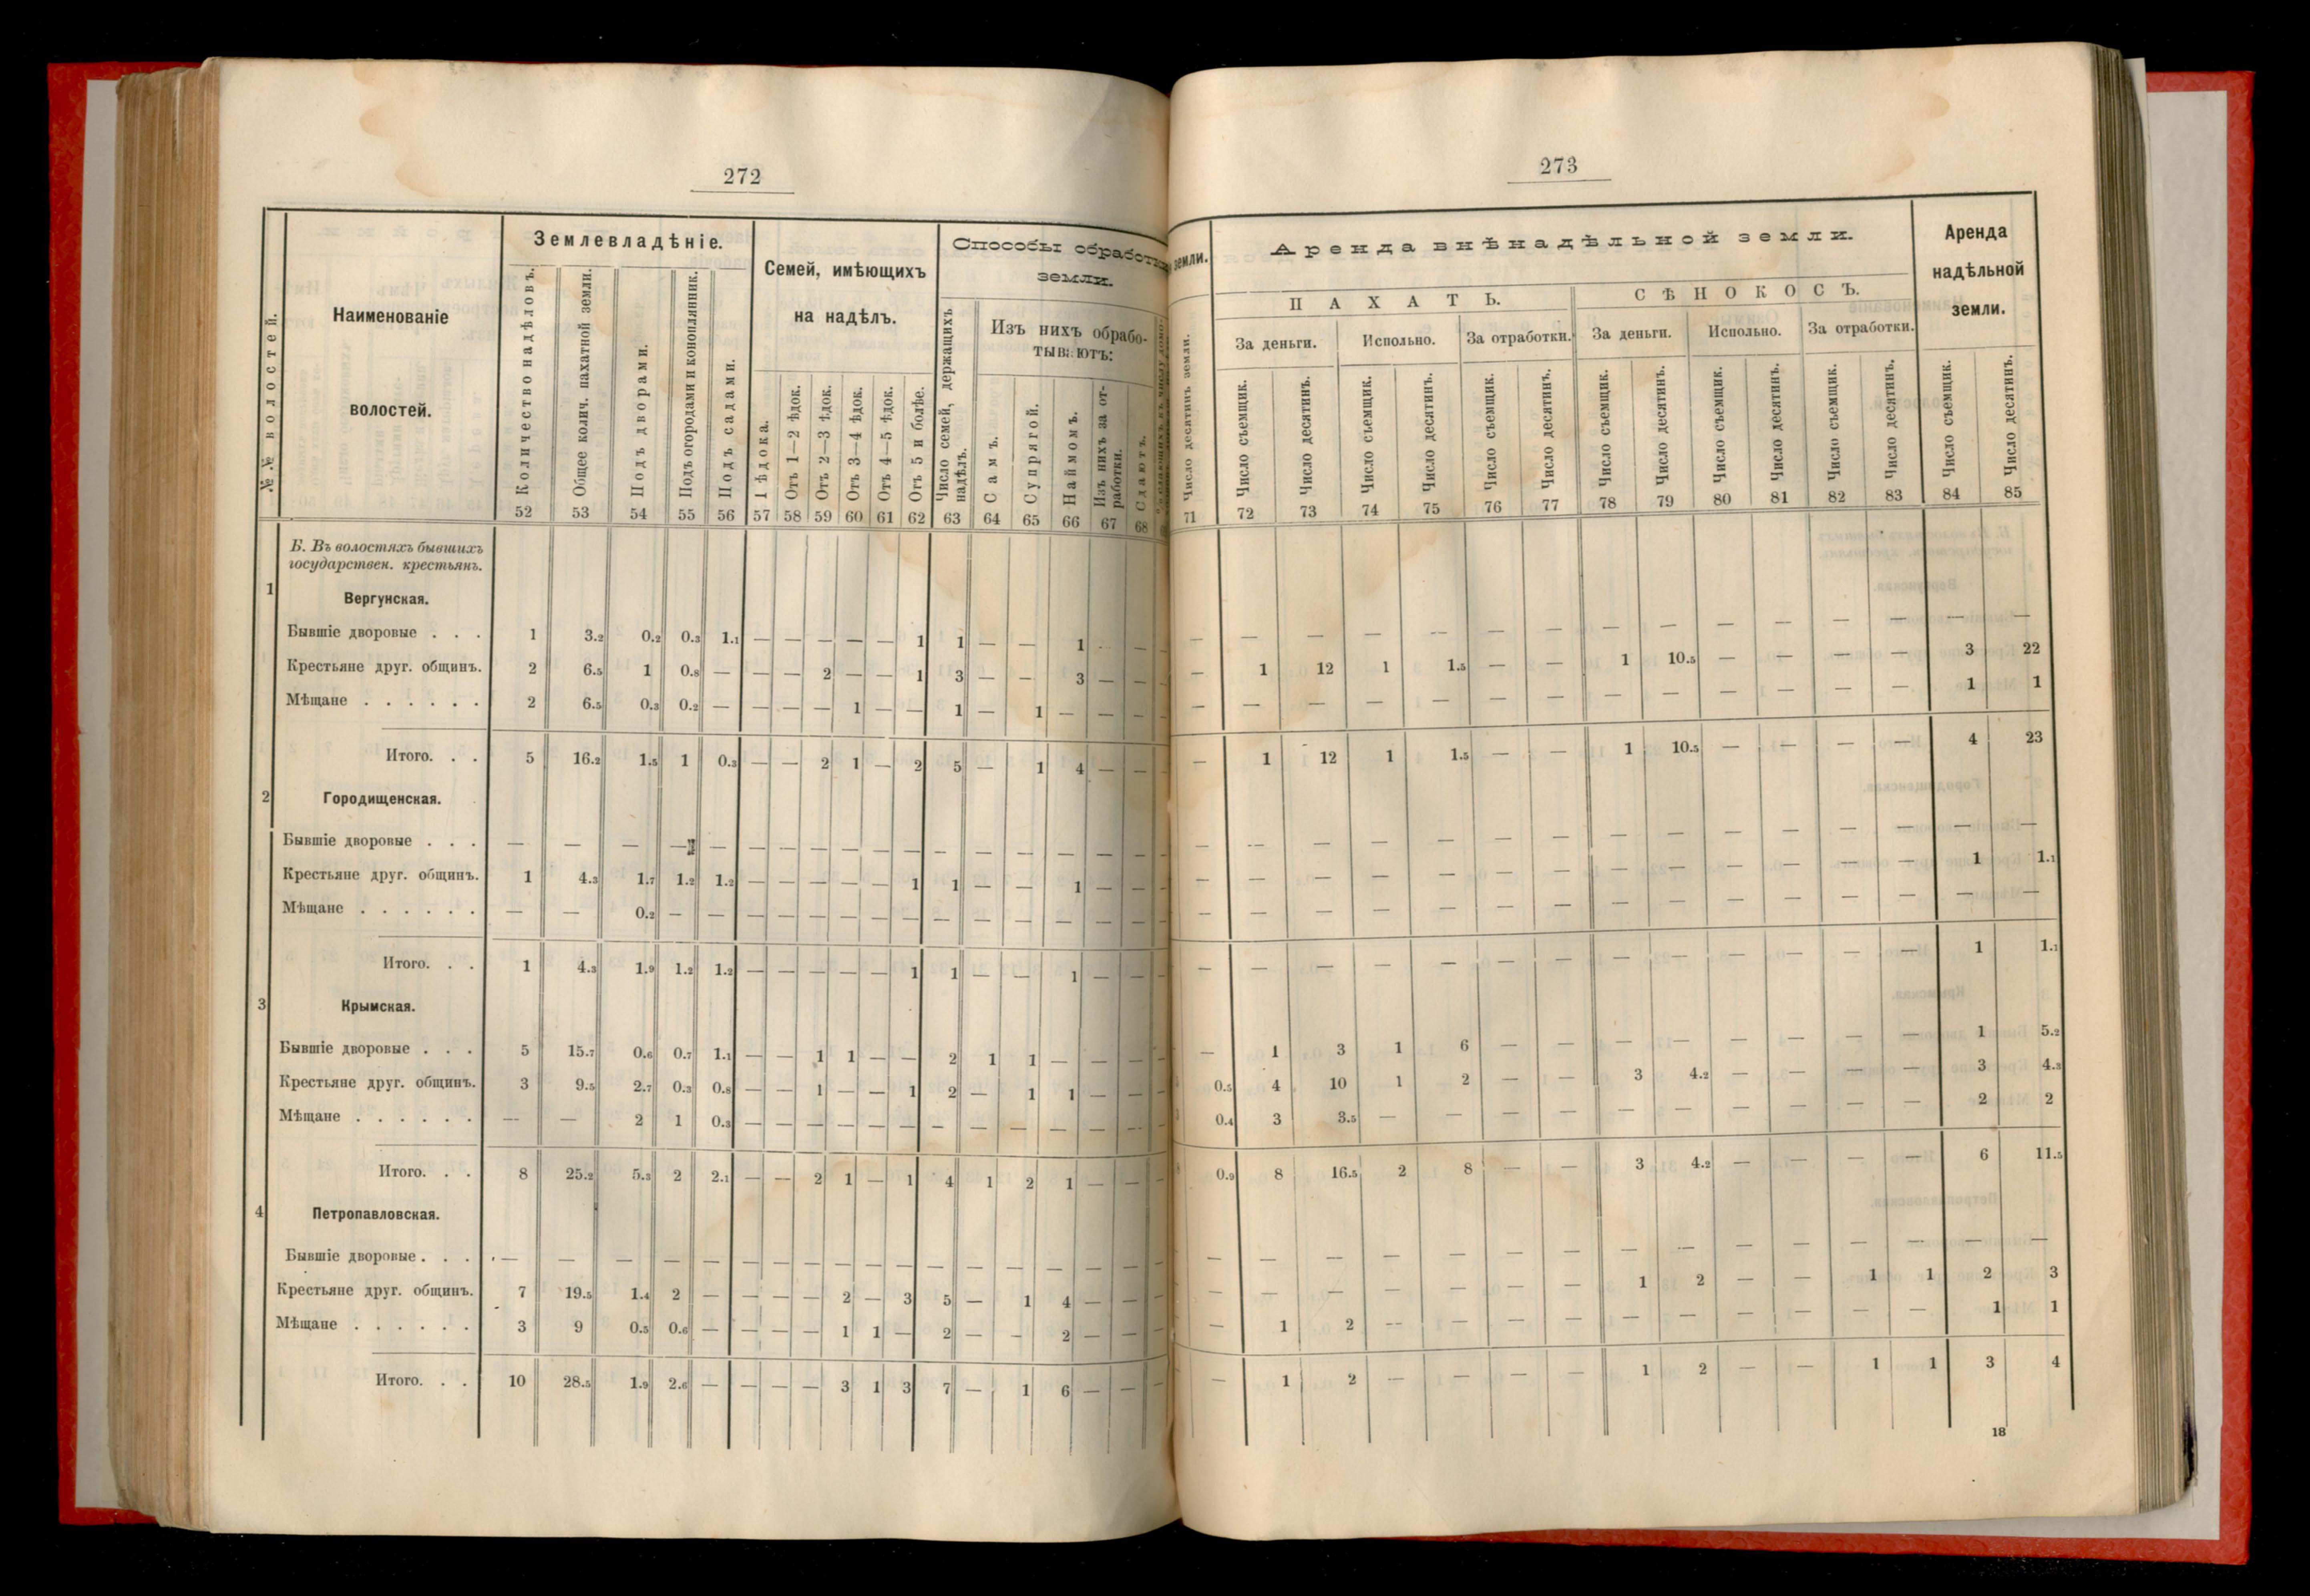 272
Землевладѣніе.
Семей, имѣющихъ
на надѣлъ.
Способы обработки
земли.
Изъ нихъ обрабо-
тываютъ:
№№ волостей.
Наименованіе
волостей.
Количество надѣловъ.
Общее колич. пахатной земли.
Подъ дворами.
Подъ огородами и коноплянник.
Подъ садами.
1 ѣдока.
Отъ 1—2 ѣдок.
Отъ 2—3 ѣдок.
Отъ 3—4 ѣдок.
Отъ 4—5 ѣдок.
Отъ 5 и болѣе.
Число семей, держащихъ
надѣлъ.
Самъ.
Супрягой.
Наймомъ.
Изъ нихъ за от-
работки.
Сдаютъ.
52 53 54 55 56 57 58 59 60 61 62 63 64 65 66 67 68
Б. Въ волостяхъ бывшихъ
государствен. крестьянъ.
1 Вергунская.
Бывшіе дворовые . . . 1 3.2 0.2 0.3 1.1 — — — — — 1 1 — — 1 - —
Крестьяне друг. общинъ. 2 6.5 1 0.8 — — — 2 — — 1 3 — — 3 — —
Мѣщане . . . . . . 2 6.5 0.3 0.2 — — — — 1 — — 1 — 1 — — —
Итого. . . 5 16.2 1.5 1 0.3 — — 2 1 — 2 5 — 1 4 — —
2 Городищенская.
Бывшіе дворовые . . . — — — — — — — — — — — — — — — — —
Крестьяне друг. общинъ. 1 4.3 1.7 1.2 1.2 — — — — — 1 1 — — 1 — —
Мѣщане . . . . . . — — 0.2 — — — — — — — — — — — — — —
Итого. . . 1 4.3 1.9 1.2 1.2 — — — — — 1 1 — — 1 — —
3 Крымская.
Бывшіе дворовые . . . 5 15.7 0.6 0.7 1.1 — — 1 1 — — 2 1 1 — — —
Крестьяне друг. общинъ. 3 9.5 2.7 0.3 0.8 — — 1 — — 1 2 — 1 1 — —
Мѣщане . . . . . . — — 2 1 0.3 — — — — — — — — — — — —
Итого. . . 8 25.2 5.3 2 2.1 — — 2 1 — 1 4 1 2 1 — —
4 Петропавловская.
Бывшіе дворовые . . . — — — — — — — — — — — — — — — — —
Крестьяне друг. общинъ. 7 19.5 1.4 2 — — — — 2 — 3 5 — 1 4 — —
Мѣщане . . . . . . 3 9 0.5 0.6 — — — — 1 1 — 2 — - 2 — —
Итого. . . 10 28.5 1.9 2.6 — — — — 3 1 3 7 — 1 6 — —
273
земли.
Аренда внѣнадѣльной земли.
Аренда
надѣльной
земли.
ПАХАТЬ.
СѢНОКОСЪ.
За деньги. Испольно. За отработки. За деньги. Испольно. За отработки.
Число десятинъ земли.
Число съемщик.
Число десятинъ.
Число съемщик.
Число десятинъ.
Число съемщик.
Число десятинъ.
Число съемщик.
Число десятинъ.
Число съемщик.
Число десятинъ.
Число съемщик.
Число десятинъ.
Число съемщик.
Число десятинъ.
71 72 73 74 75 76 77 78 79 80 81 82 83 84 85
— — — — — — — — — — — — — — —
— 1 12 1 1.5 — — 1 10.5 — — — — 3 22
— — — — — — — — — — — — — 1 1
— 1 12 1 1.5 — — 1 10.5 — — — — 4 23
— — — — — — — — — — — — — — —
— — — — — — — — — — — — — 1 1.1
— — — — — — — — — — — — — — —
— — — — — — — — — — — — — 1 1.1
— 1 3 1 6 — — — — — — — — 1 5.2
0.5 4 10 1 2 — — 3 4.2 — — — — 3 4.3
0.4 3 3.5 — — — — — — — — — — 2 2
0.9 8 16.5 2 8 — — 3 4.2 — — — — 6 11.5
— — — — — — — — — — — — — — —
— — — — — — — 1 2 — — 1 1 2 3
— 1 2 — — — — — — — — — — 1 1
— 1 2 — — — — 1 2 — — 1 1 3 4
18